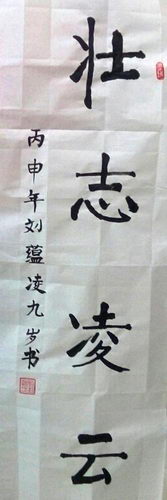 壮志凌云
丙申年刘蕴凌九岁书